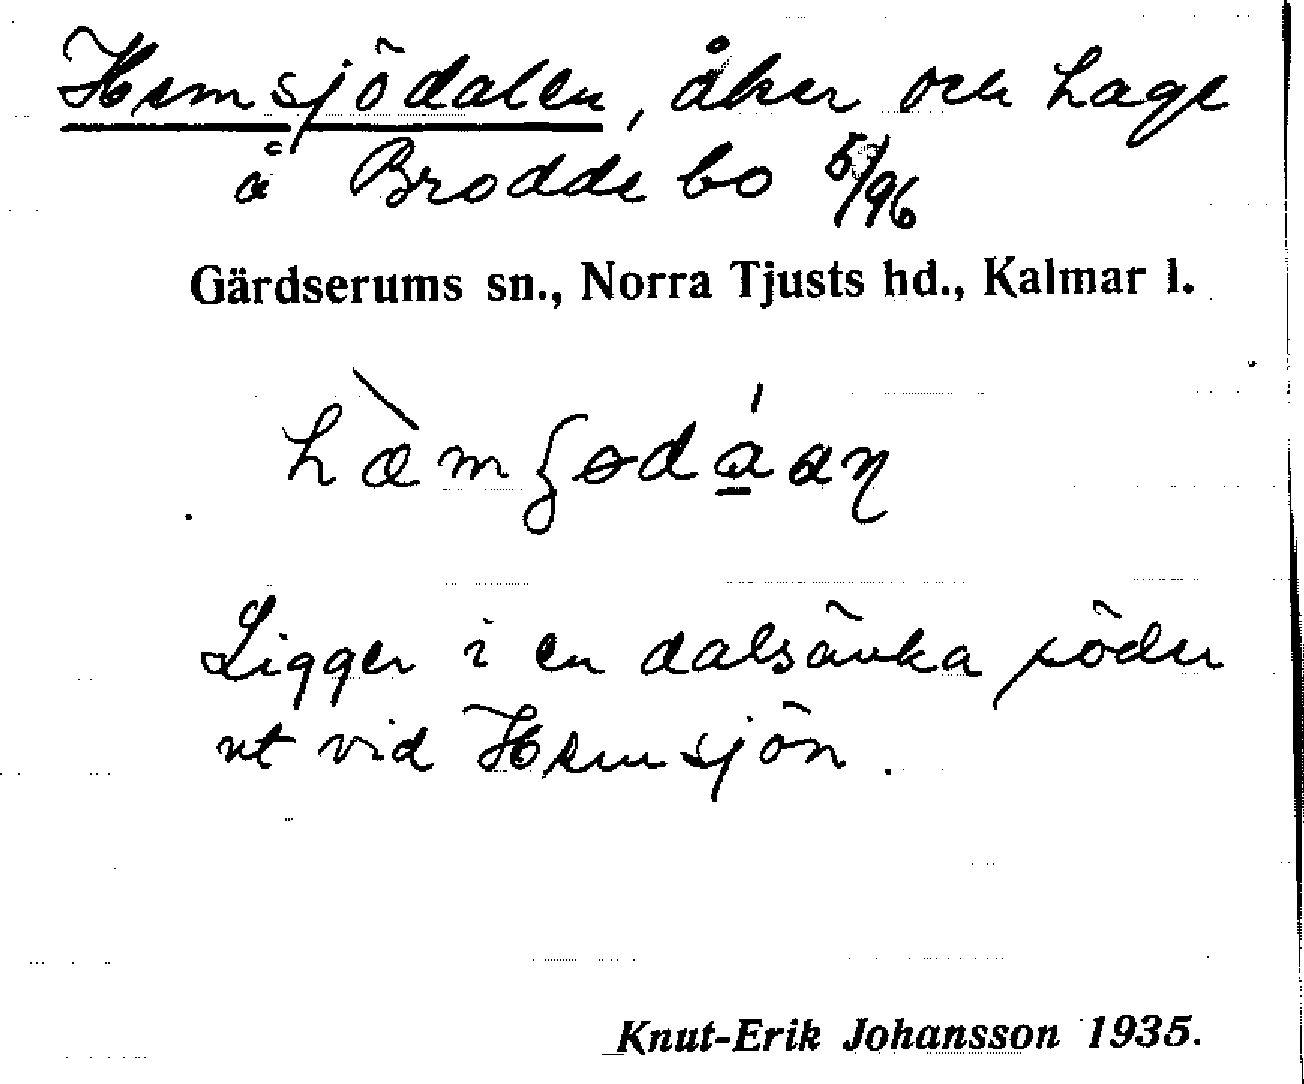 Hemsjödalen, åker och hage
å Broddebo 5/96
Gärdserums sn., Norra Tjusts hd., Kalmar l.
Ligger i en dalsänka söder
ut vid Hemsjön.
Knut-Erik Johansson 1935.